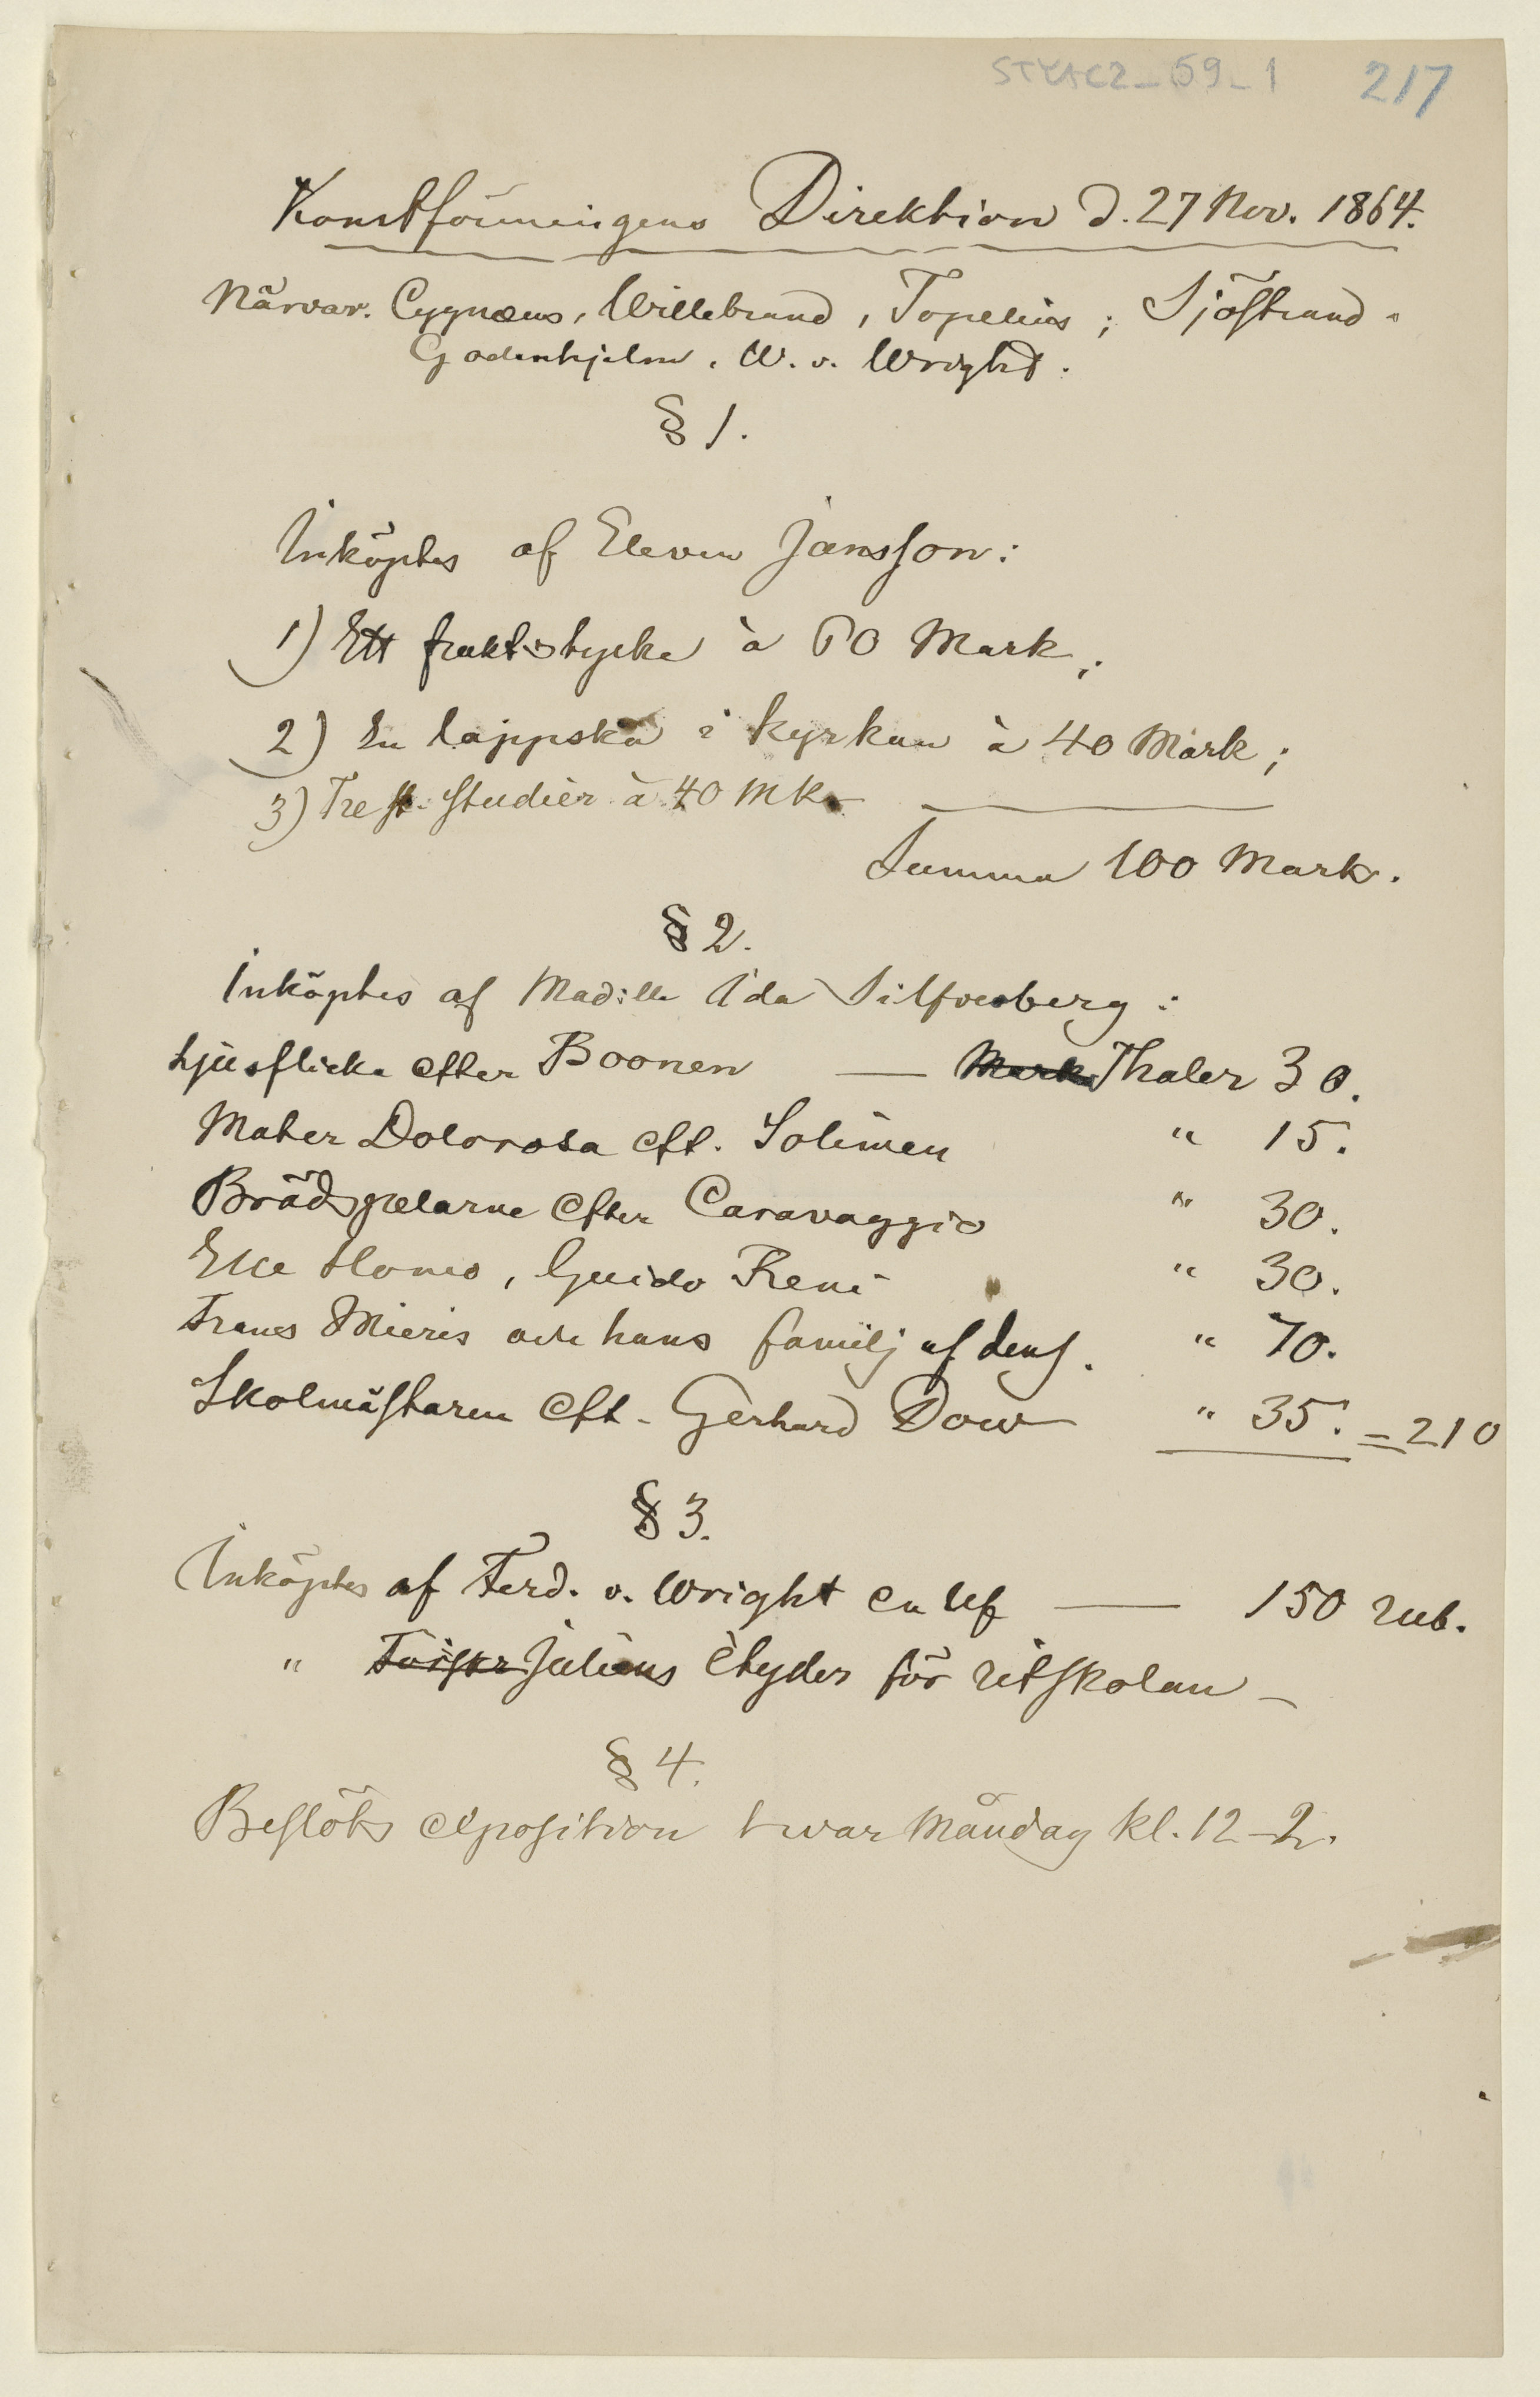 STYAC2_59_1 217
Konstföreningens Direktion d. 27 Nov. 1864.
Närvar. Cygnæus, Willebrand, Topelius, Sjöstrand,
Godenhjelm, W. v. Wright.
§ 1.
Inköptes af Eleven Jansson:
1) Ett fruktstycke à 60 Mark;
2) En lappska i kyrkan à 40 Mark;
3) Tre st. studier à 40 Mk
Summa 100 Mark.
§ 2.
Inköptes af Mad:lle Ida Silfverberg:
Ljusflicka efter Boonen — Mark Thaler 30.
Mater Dolorosa eft. Solimen " 15.
Brädspelarne efter Caravaggio " 30.
Ecce Homo, Guido Reni " 30.
Frans Mieris och hans familj af dens. " 70.
Skolmästaren eft. Gerhard Dow " 35. = 210
§ 3.
Inköptes af Ferd. v. Wright en Uf — 150 rub.
" Juliens Etyder för ritskolan —
§ 4.
Beslöts exposition hvar Måndag kl. 12–2.